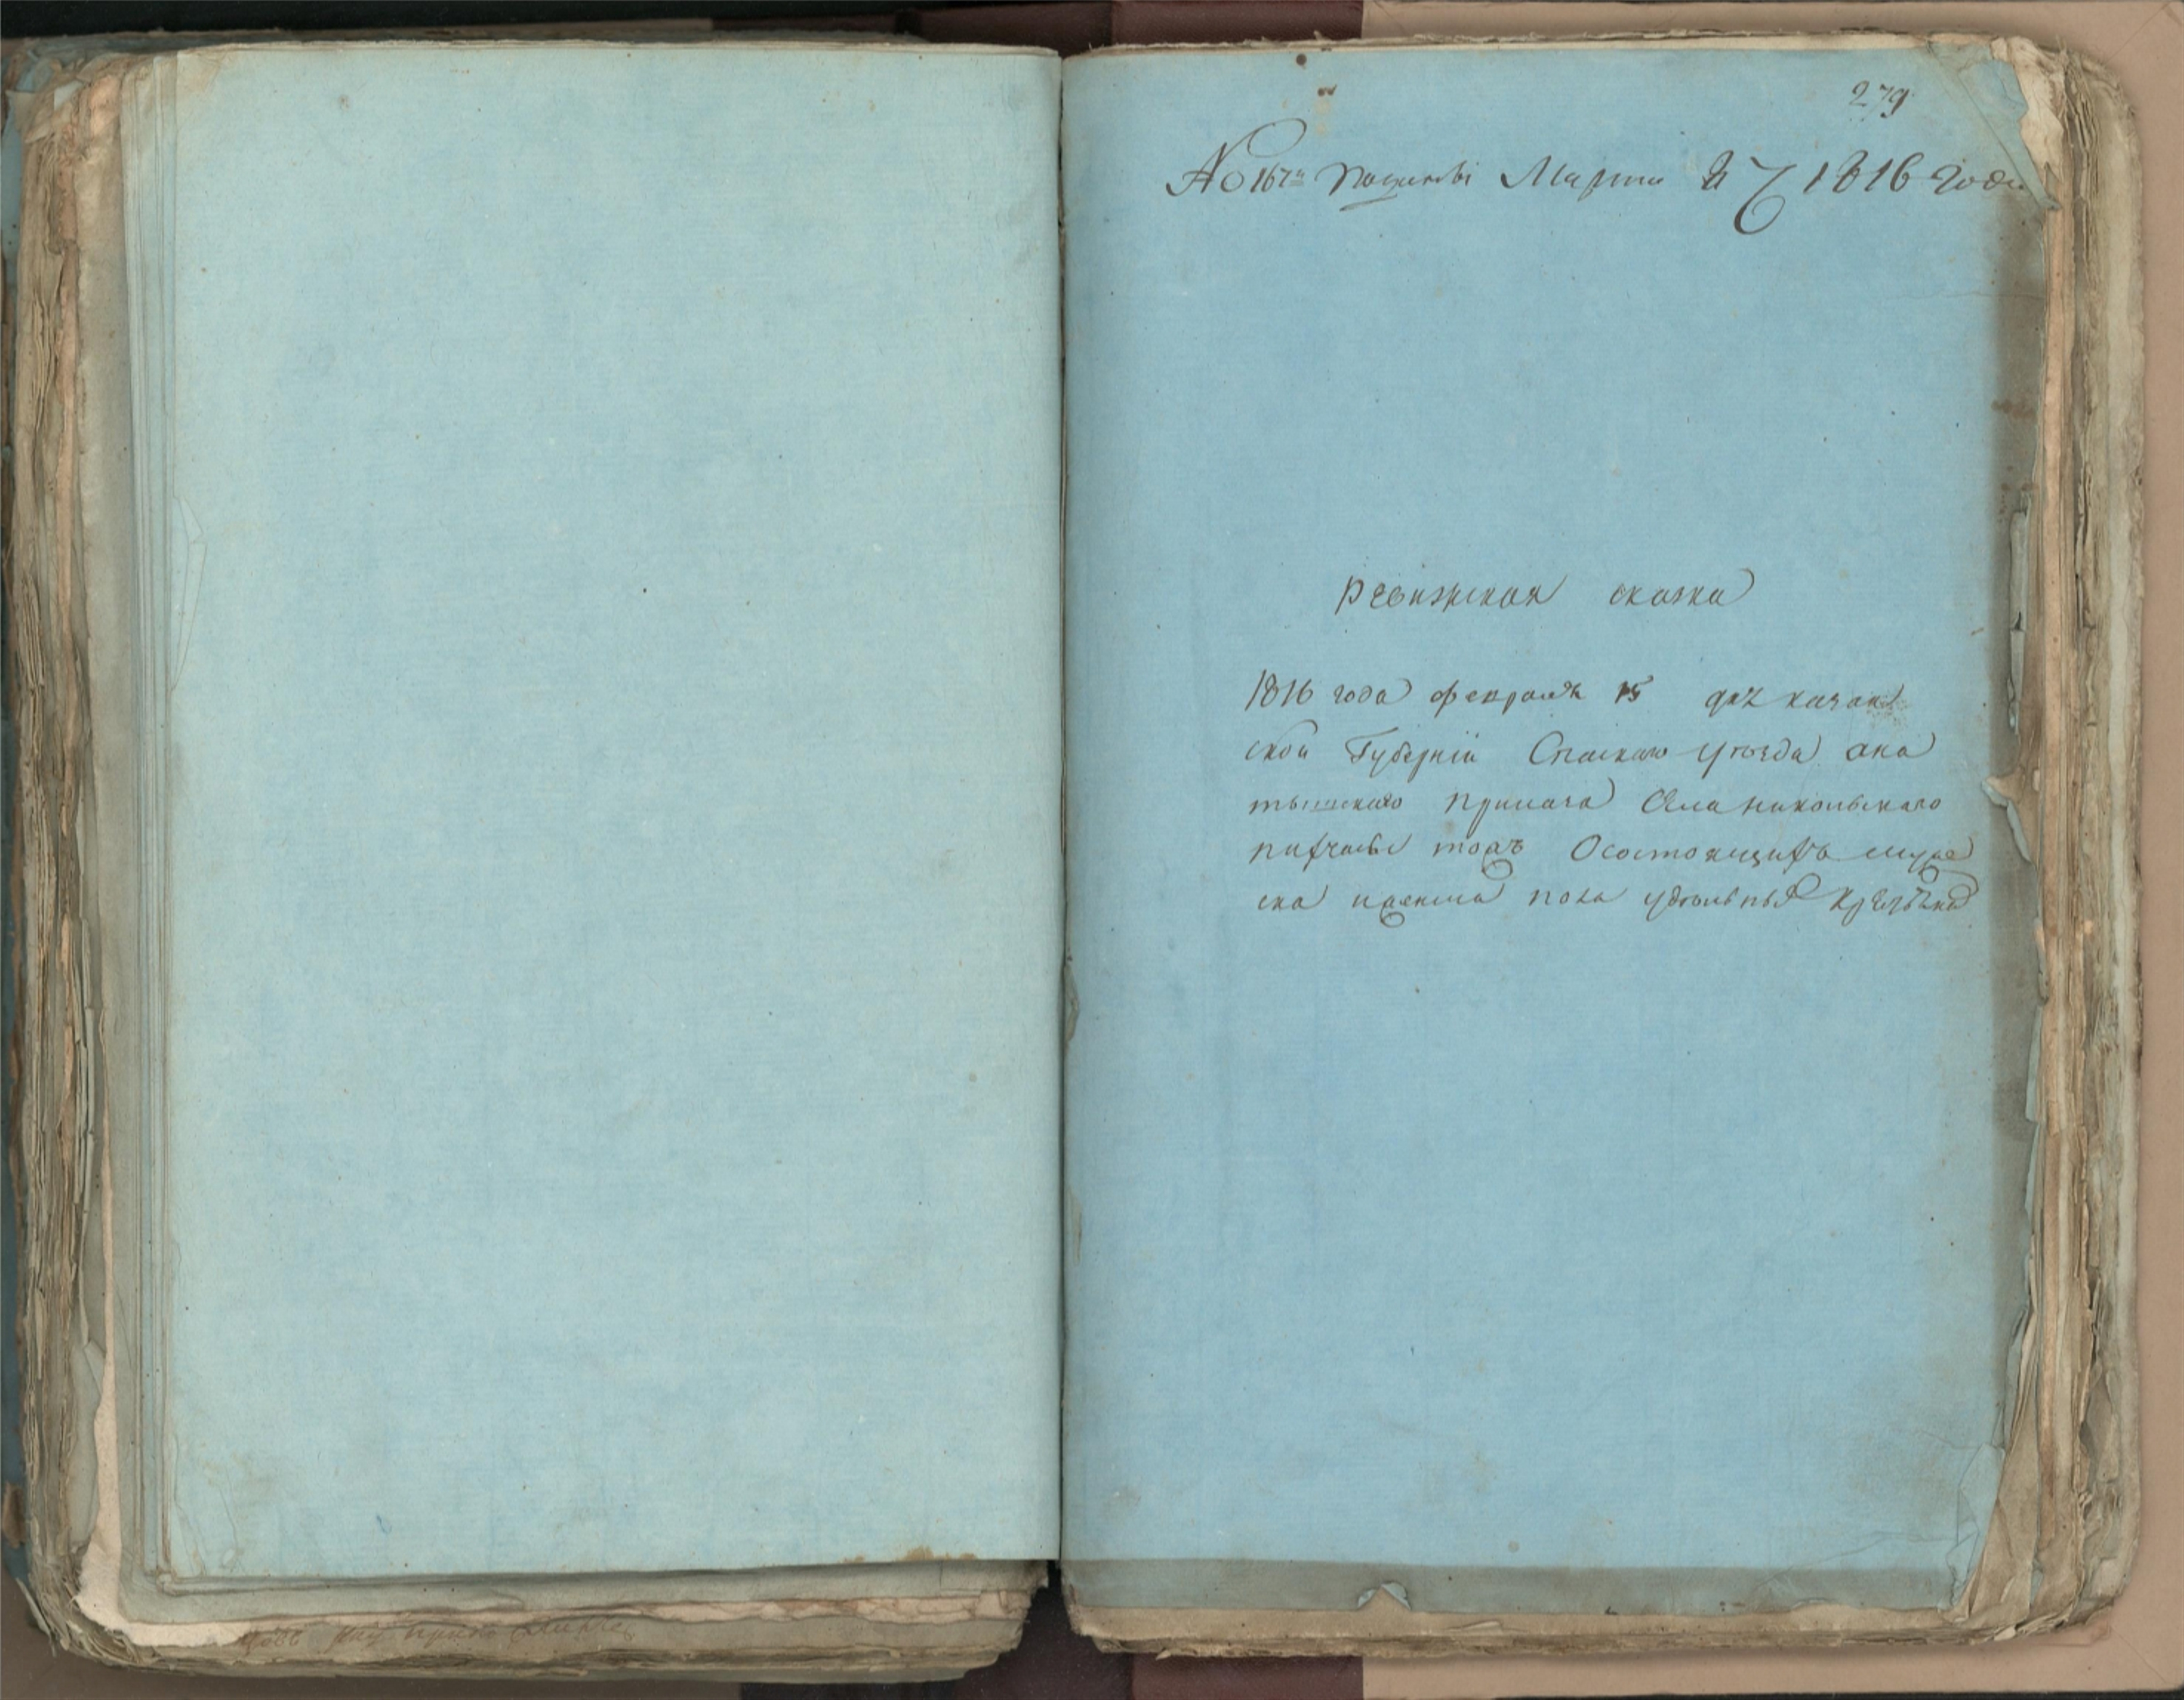 279
No 167й Марта 27 1816 Года
Ревизская сказка
1816 года февраля 15 дня казан
ской Губернии Спаскаго уезда ана
тышскаго приказа Села никольскаго
тожъ О состоящихъ муже
ска и женска пола удельныхъ крестьянъ